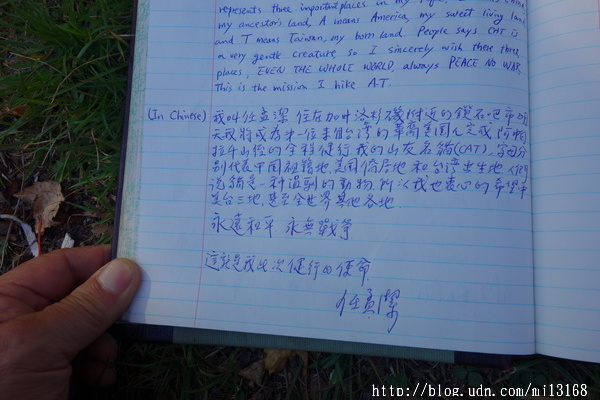 represents three important places in my life,
my ancestor's land, A means America, my sweet living land
and T means Taiwan, my born land. People says CAT is
a very gentle creature, so I sincerely wish these three
places, EVEN THE WHOLE WORLD, always PEACE NO WAR.
This is the mission I hike A.T.
(In Chinese) 我叫任 潔 住在加州洛杉磯附近的鑽石吧市 明
天 將成為第一位來自台灣的華裔美國人完成 阿帕
拉千山徑的全程健行,我的山友名 貓(CAT), 字母分
別代表中國祖籍地、美國僑居地 和台灣出生地 人們
說貓是一種溫馴的動物, 所以我也衷心的希望
這三地, 甚至全世界其他各地,
永遠和平 永無戰爭
這就是我此次健行的使命
任 潔
http://blog.udn.com/mi13168